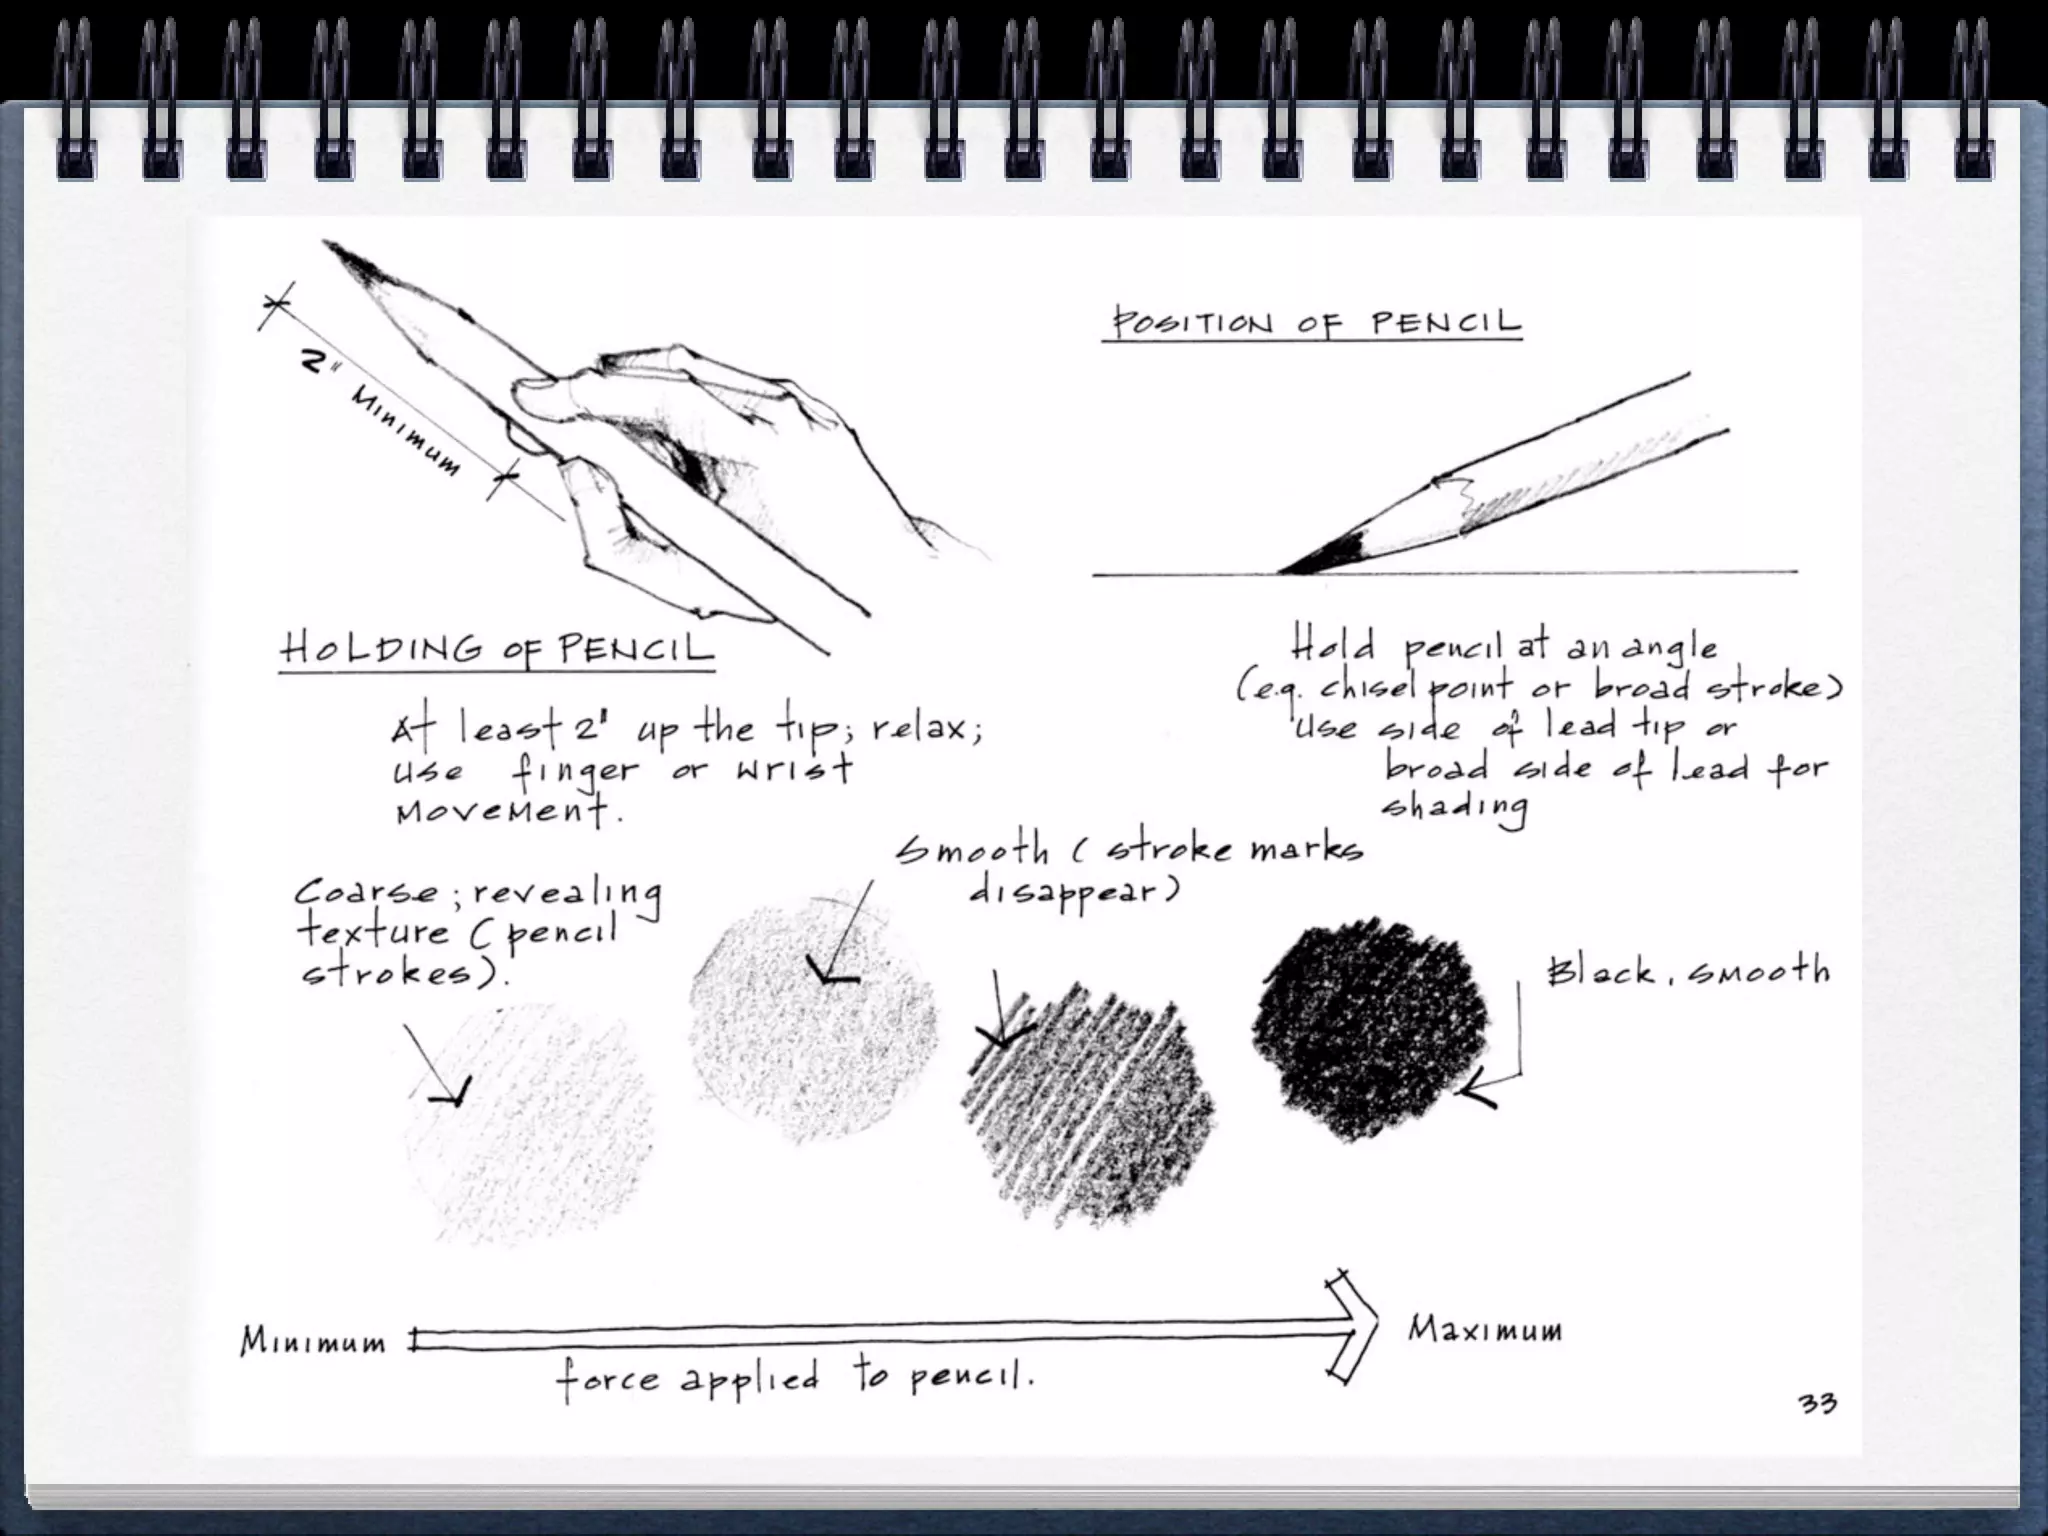 2" Minimum
POSITION OF PENCIL
HOLDING OF PENCIL
At least 2" up the tip; relax;
use finger or wrist
movement.
Hold pencil at an angle
(e.g. chisel point or broad stroke)
Use side of lead tip or
broad side of lead for
shading
Coarse; revealing
texture (pencil
strokes).
Smooth (stroke marks
disappear)
Black, smooth
Minimum
Maximum
force applied to pencil.
33